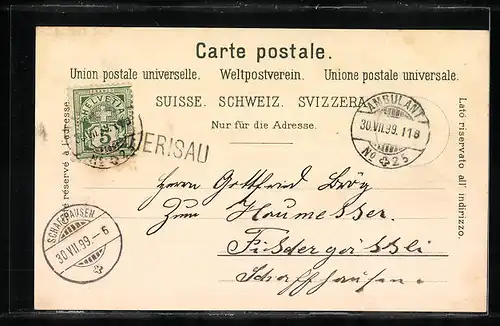 Carte postale.
Union postale universelle. Weltpostverein. Unione postale universale.
SUISSE. SCHWEIZ. SVIZZERA.
Nur für die Adresse.
réservé à l'adresse.
Lato riservato all' indirizzo.
HELVETIA
5
HERISAU
AMBULANT
30.VII.99. 11 8
No 25
Herrn Gottfried
Zum
Schaffhausen.
SCHAFFHAUSEN
30 VII 99.-6